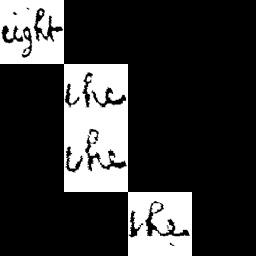 eight
the
the
the